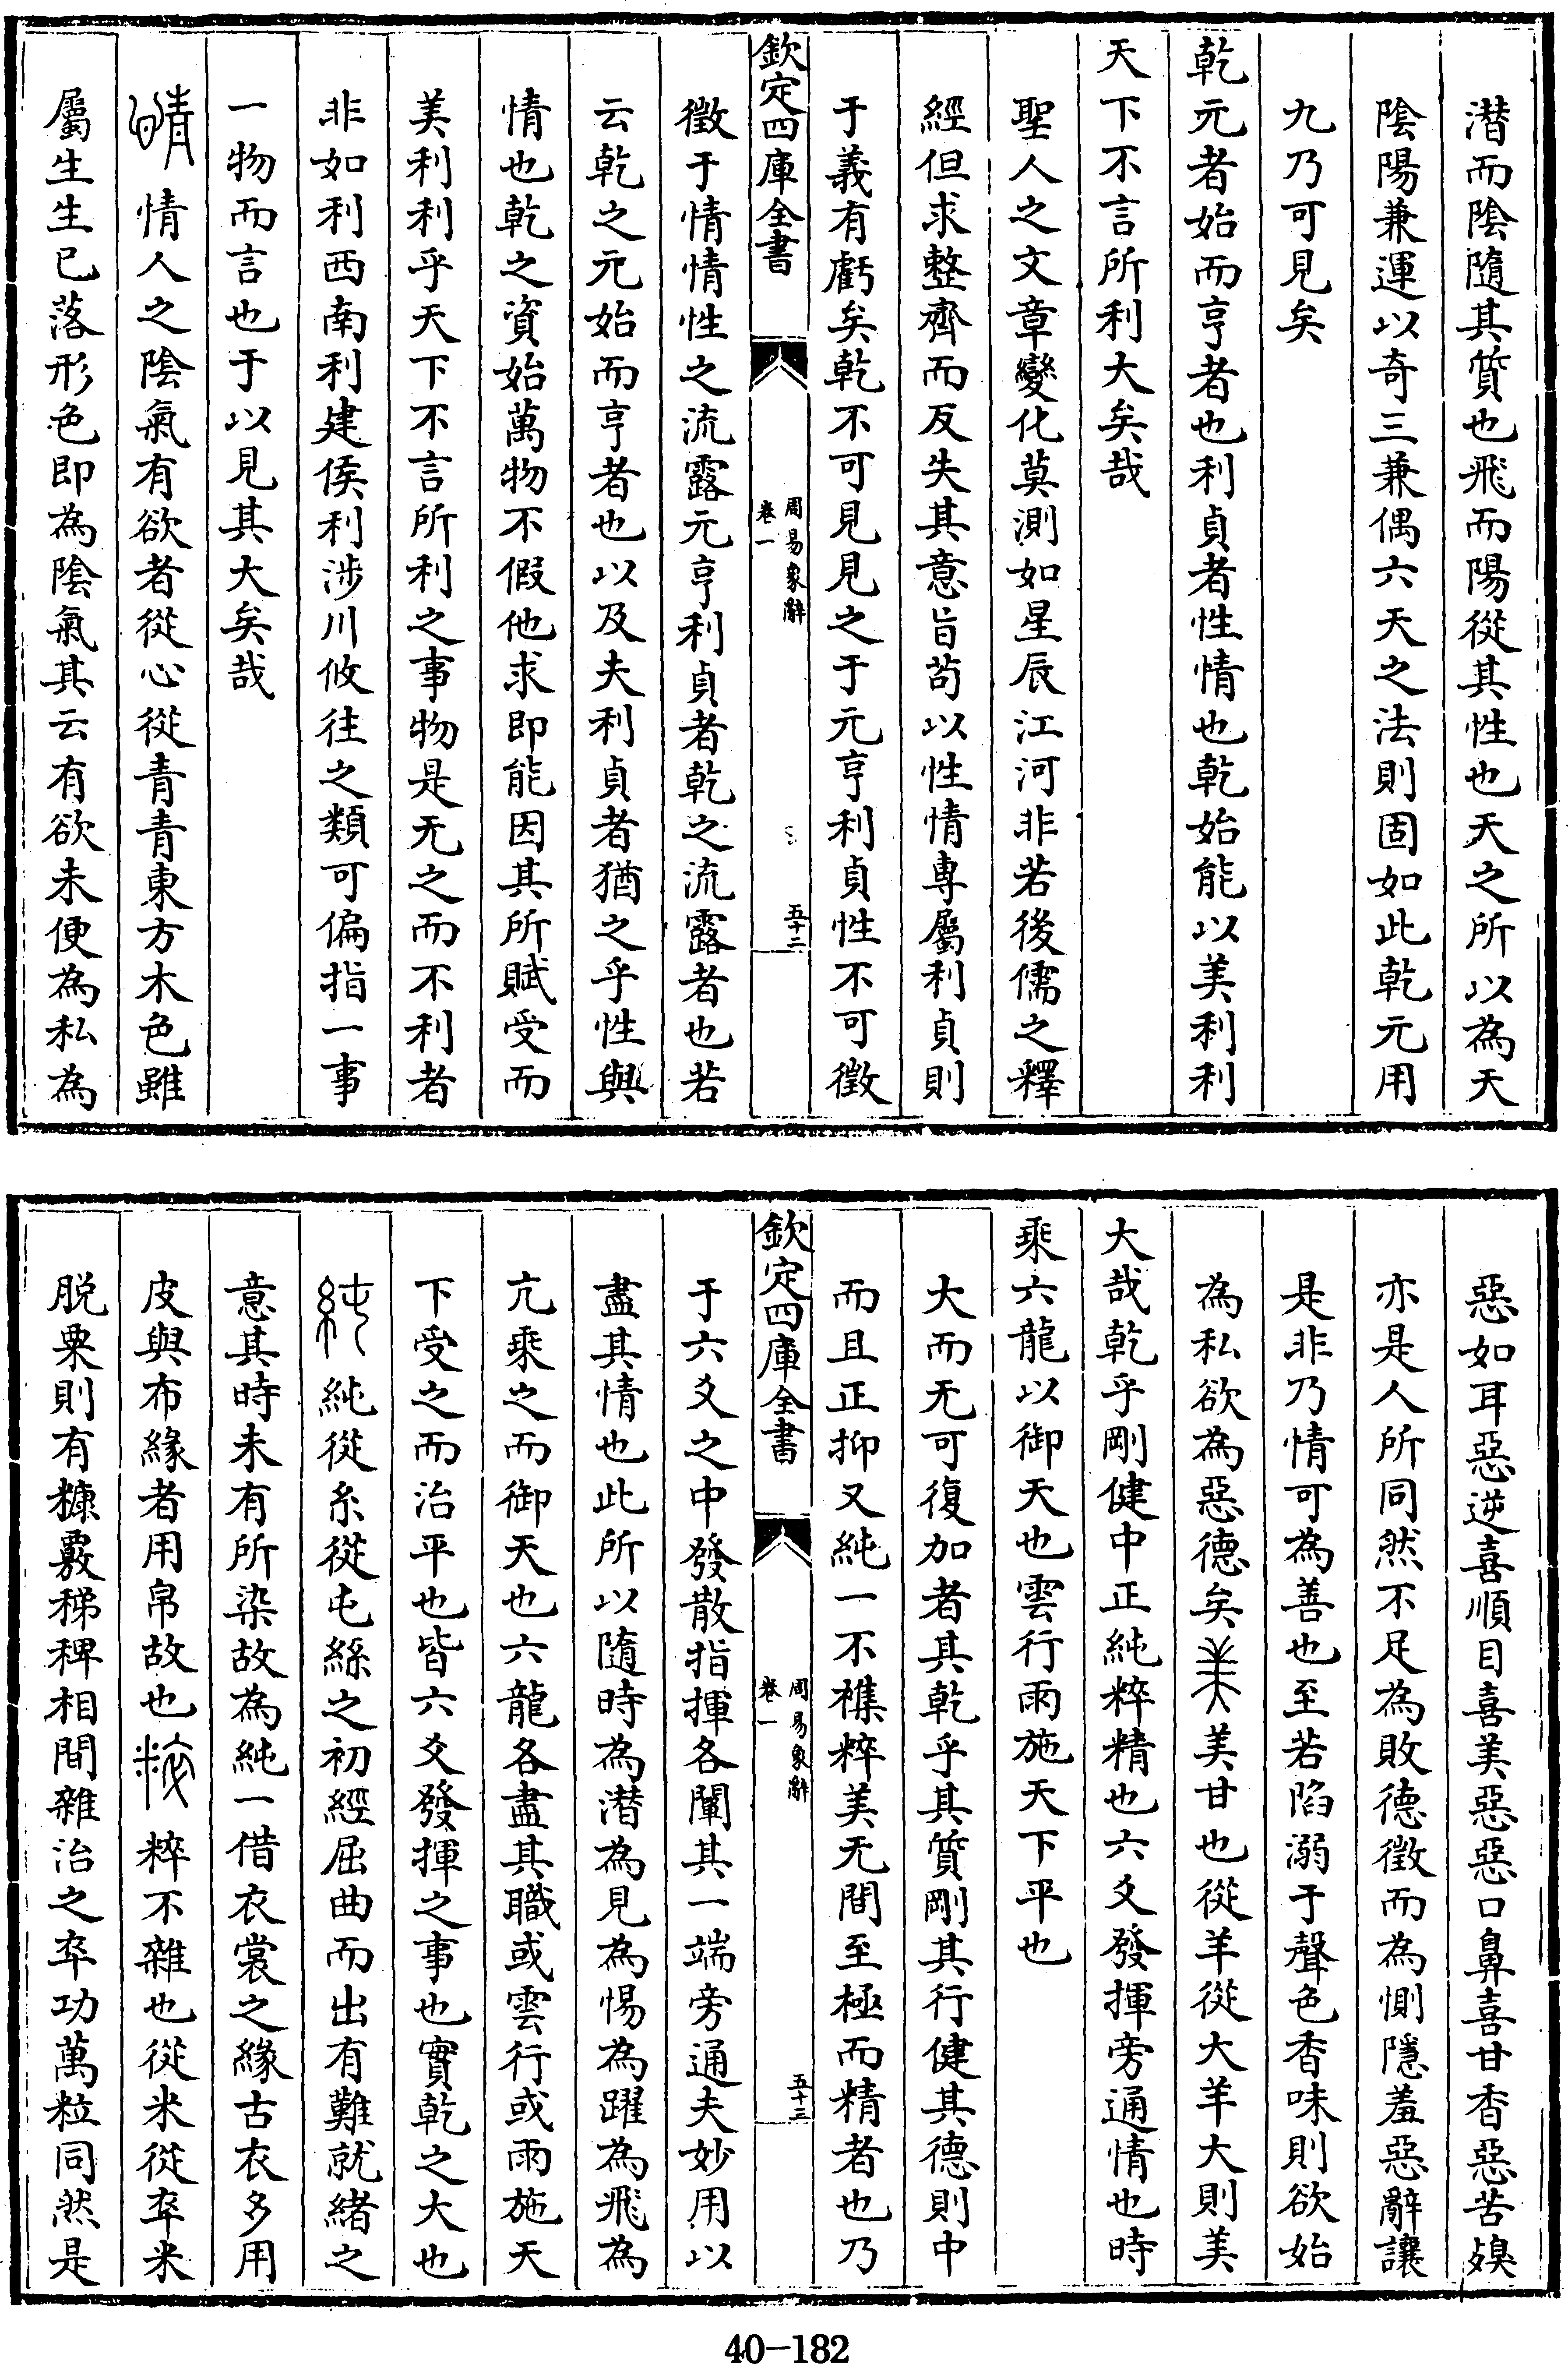 潛而陰隨其質也飛而陽從其性也天之所以為天
陰陽兼運以奇三兼偶六天之法則固如此乾元用
九乃可見矣
乾元者始而亨者也利貞者性情也乾始能以美利利
天下不言所利大矣哉
聖人之文章變化莫測如星辰江河非若後儒之釋
經但求整齊而反失其意旨苟以性情專屬利貞則
于義有虧矣乾不可見見之于元亨利貞性不可徵
欽定四庫全書
周易象辭
卷一
五十二
徵于情情性之流露元亨利貞者乾之流露者也若
云乾之元始而亨者也以及夫利貞者猶之乎性與
情也乾之資始萬物不假他求即能因其所賦受而
美利利乎天下不言所利之事物是无之而不利者
非如利西南利建侯利涉川攸往之類可偏指一事
一物而言也于以見其大矣哉
情人之陰氣有欲者從心從青青東方木色雖
屬生生已落形色即為陰氣其云有欲未便為私為
惡如耳惡逆喜順目喜美惡惡口鼻喜甘香惡苦䑕
亦是人所同然不足為敗德徵而為惻隱羞惡辭讓
是非乃情可為善也至若陷溺于聲色香味則欲始
為私欲為惡德矣美甘也從羊從大羊大則美
大哉乾乎剛健中正純粹精也六爻發揮旁通情也時
乘六龍以御天也雲行雨施天下平也
大而无可復加者其乾乎其質剛其行健其德則中
而且正抑又純一不襍粹美无間至極而精者也乃
欽定四庫全書
周易象辭
卷一
五十三
于六爻之中發散指揮各闡其一端旁通夫妙用以
盡其情也此所以隨時為潛為見為惕為躍為飛為
亢乘之而御天也六龍各盡其職或雲行或雨施天
下受之而治平也皆六爻發揮之事也實乾之大也
純從糸從屯絲之初經屈曲而出有難就緒之
意其時未有所染故為純一借衣裳之緣古衣多用
皮與布緣者用帛故也粹不雜也從米從卒米
脫粟則有糠覈稊稗相間雜治之卒功萬粒同然是
40-182